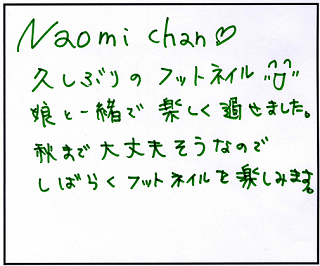 Naomi chan♡
久しぶりの フットネイル
娘と一緒で 楽しく過せました。
秋まで大丈夫そうなので
しばらくフットネイルを楽しみます。